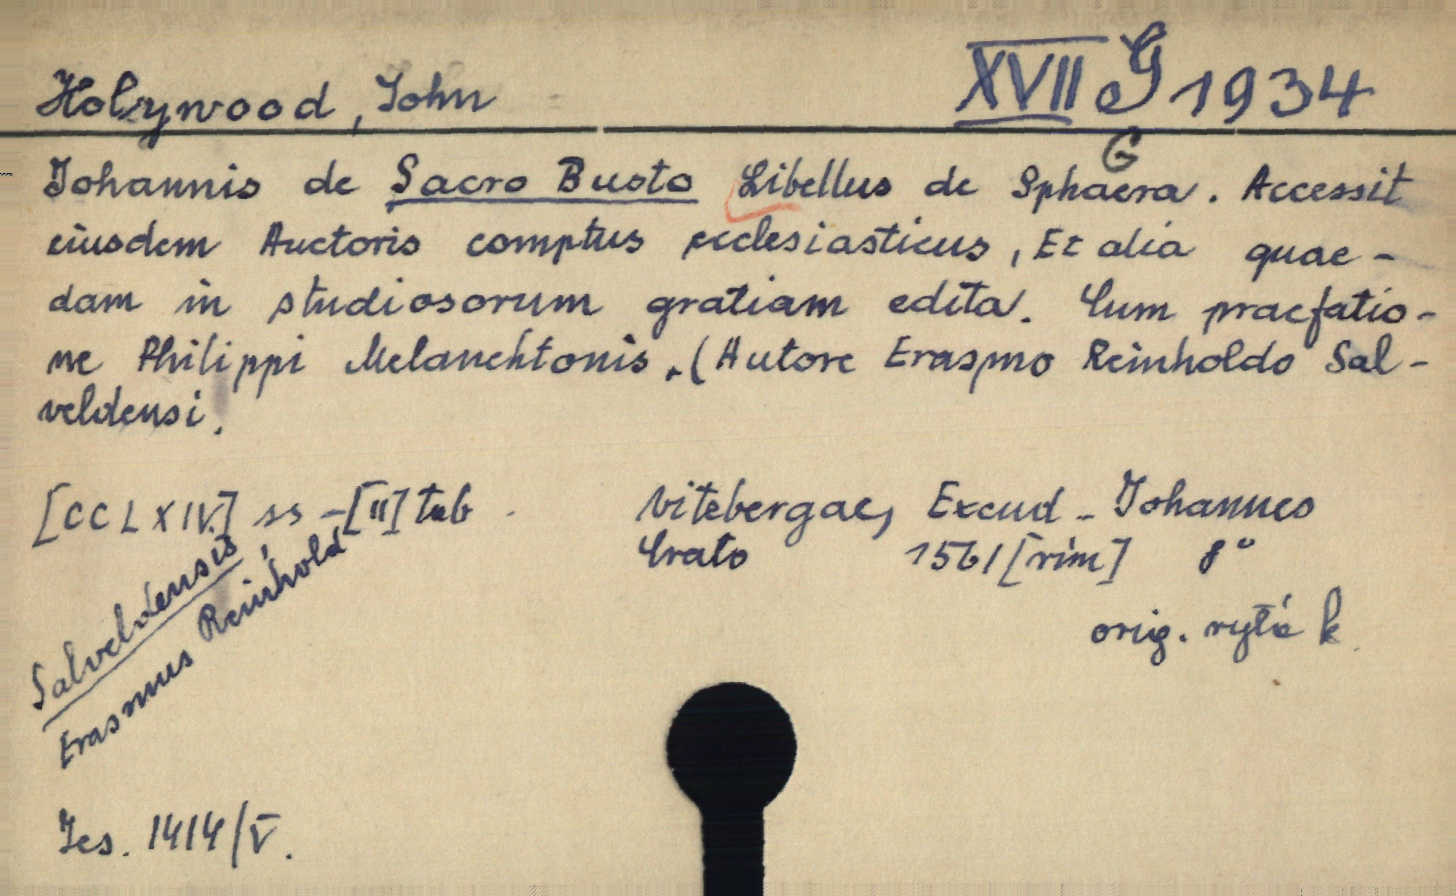 Holywood, John XVII G 1934
G
Johannis de Sacro Busto Libellus de Sphaera. Accessit
eiusdem Auctoris comptus ecclesiasticus, Et alia quae-
dam in studiosorum gratiam edita. Cum praefatio-
ne Philippi Melanchtonis. (Autore Erasmo Reinholdo Sal-
veldensi.
[CCLXIV] ss - [II] tab. Vitebergae, Excud - Johannes
Crato 1561 [rím] 8°
orig. rytá k.
Salveldensis,
Erasmus Reinhold
Jes. 1414/V.